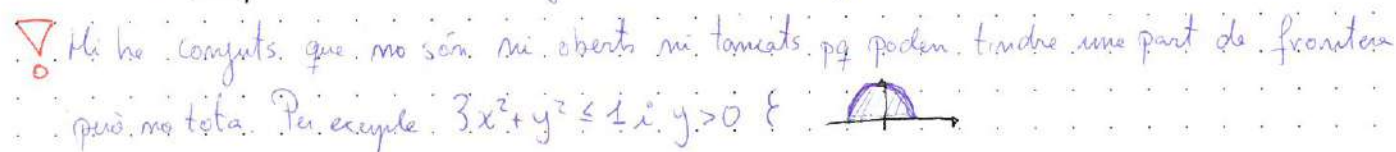 Hi ha conjunts que no són ni oberts ni tancats pq poden tindre una part de frontera
però no tota. Per exemple {x²+y² ≤ 1 i y>0}